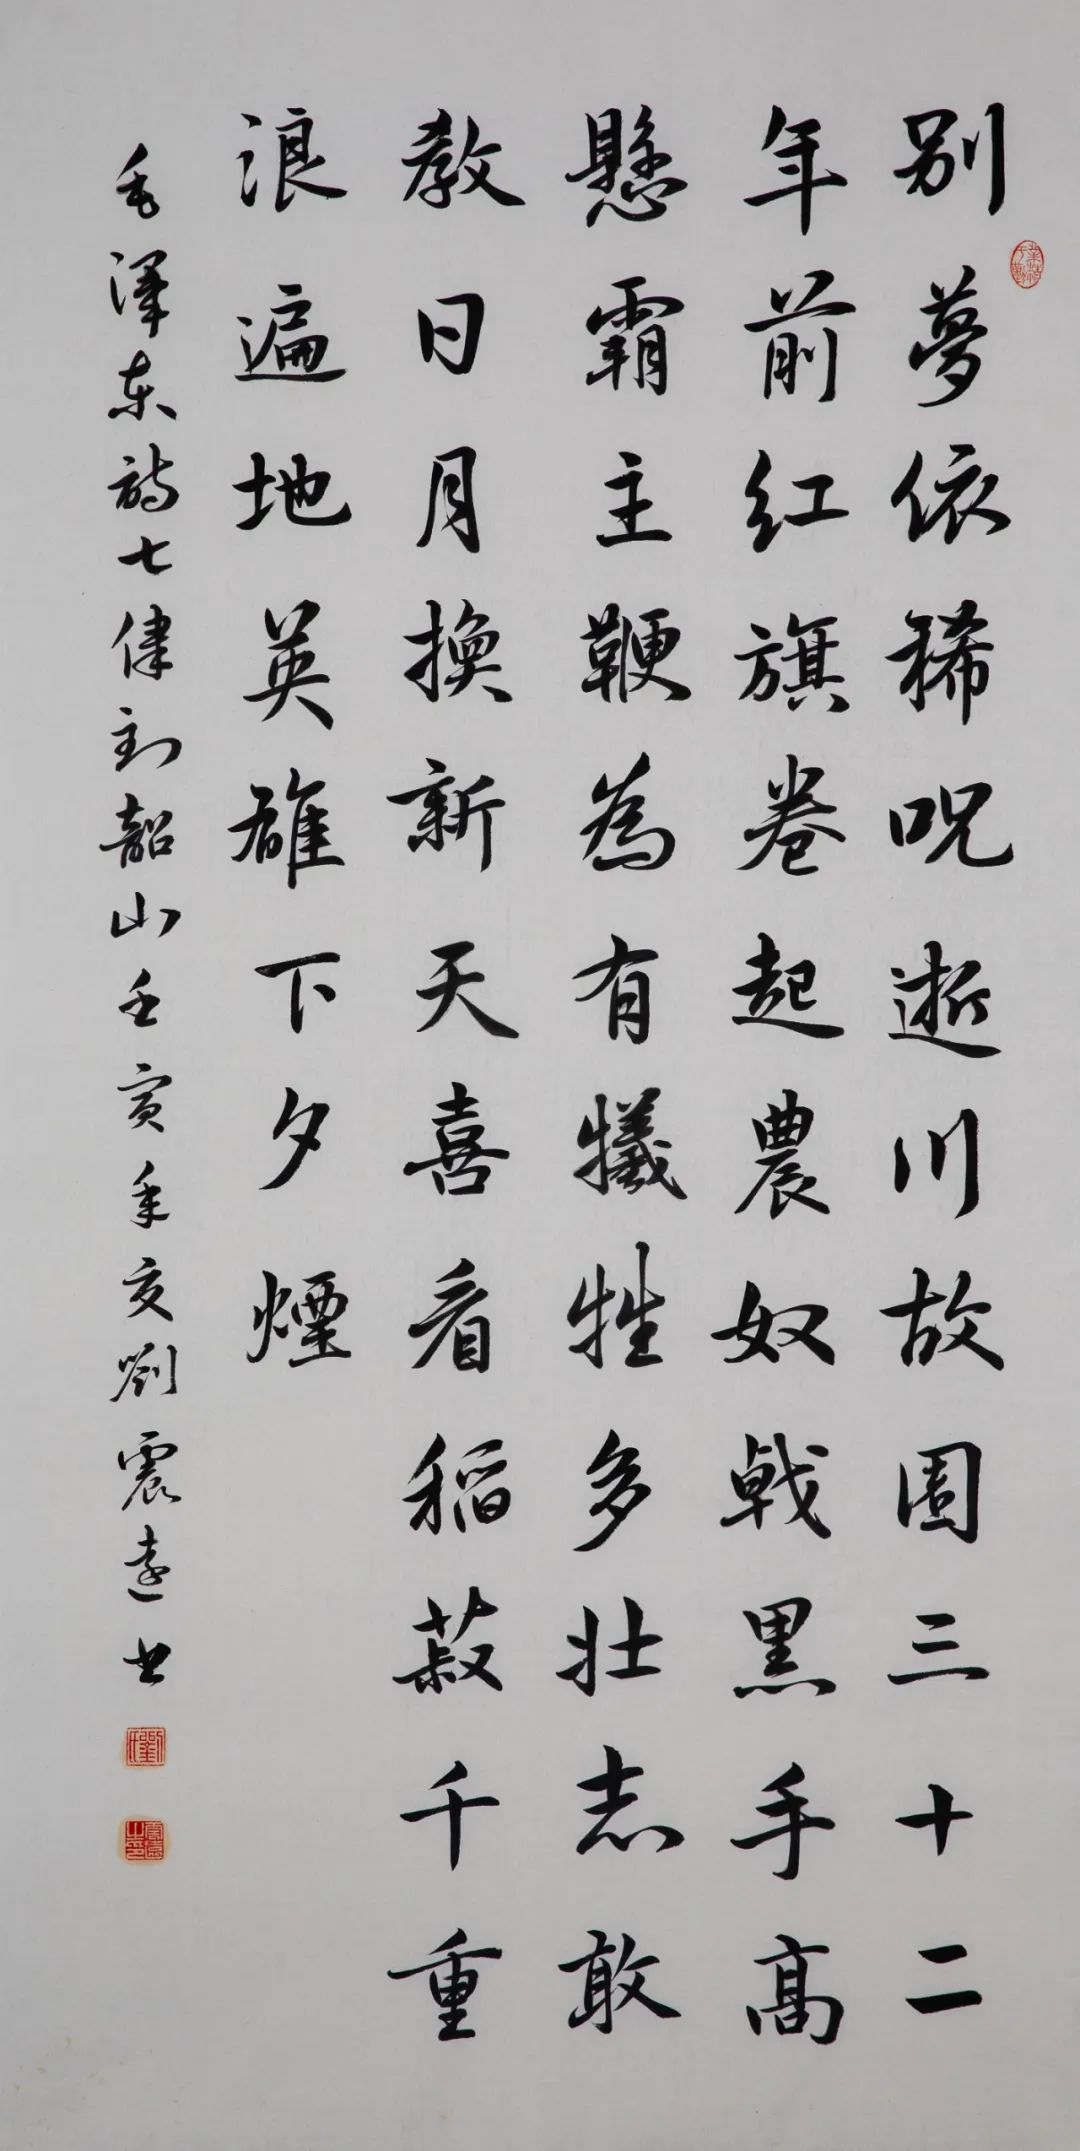 别夢依稀呪逝川故园三十二
年前红旗卷起農奴戟黑手高
懸霸主鞭為有犧牲多壯志敢
教日月换新天喜看稻菽千重
浪遍地英雄下夕煙
毛澤东詩七律到韶山壬寅年夏劉震遠书